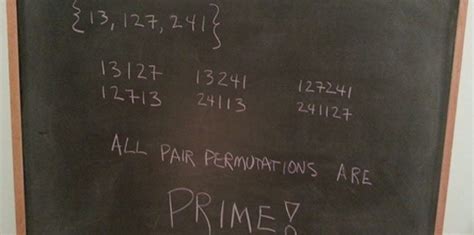 {13, 127, 241}
13127 13241 127241
12713 24113 241127
ALL PAIR PERMUTATIONS ARE
PRIME!